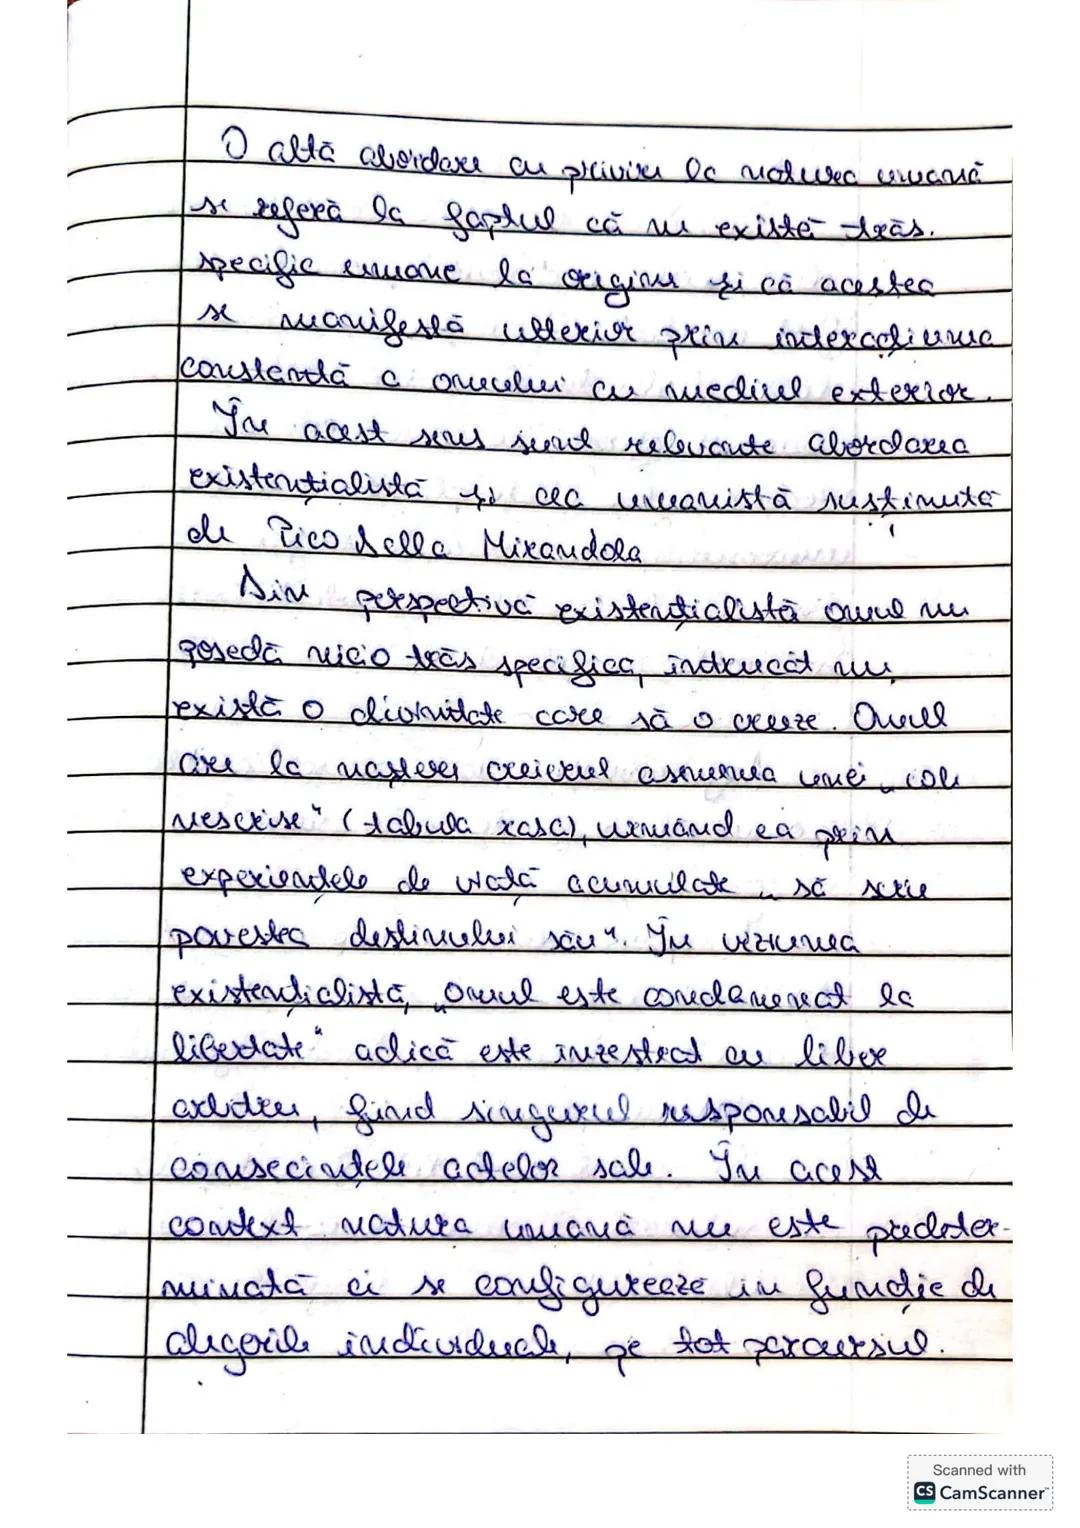 O altă abordare cu privire la natura umană
se referă la faptul că nu există trăs.
specific umane la origine și că acestea
se manifestă ulterior prin interacțiunea
constantă a omului cu mediul exterior.
În acest sens sunt relevante abordarea
existențialistă și cea umanistă susținută
de Pico della Mirandola
Din perspectivă existențialistă omul nu
posedă nicio trăs specifică, întrucât nu
există o divinitate care să o creeze. Omul
are la naștere creierul asemenea unei „coli
nescrise" (tabula rasa), urmând ca prin
experiențele de viață acumulate „să scrie
povestea destinului său". În viziunea
existențialistă, „omul este condamnat la
libertate" adică este înzestrat cu liber
arbitru, fiind singurul responsabil de
consecințele actelor sale. În acest
context natura umană nu este predeter-
minată ci se configurează în funcție de
alegerile individuale, pe tot parcursul.
Scanned with
CS CamScanner